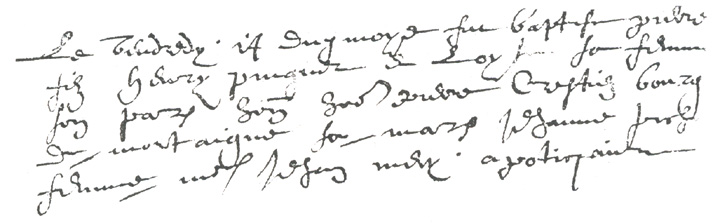 Le vendredy 17 du moys fut baptisé pierre
filz Henry pinguet & Loyse sa femme
son parr honn hoe pierre Crestien bourg
de mortaigne sa marr Jehanne
femme me Jehan apoticaire